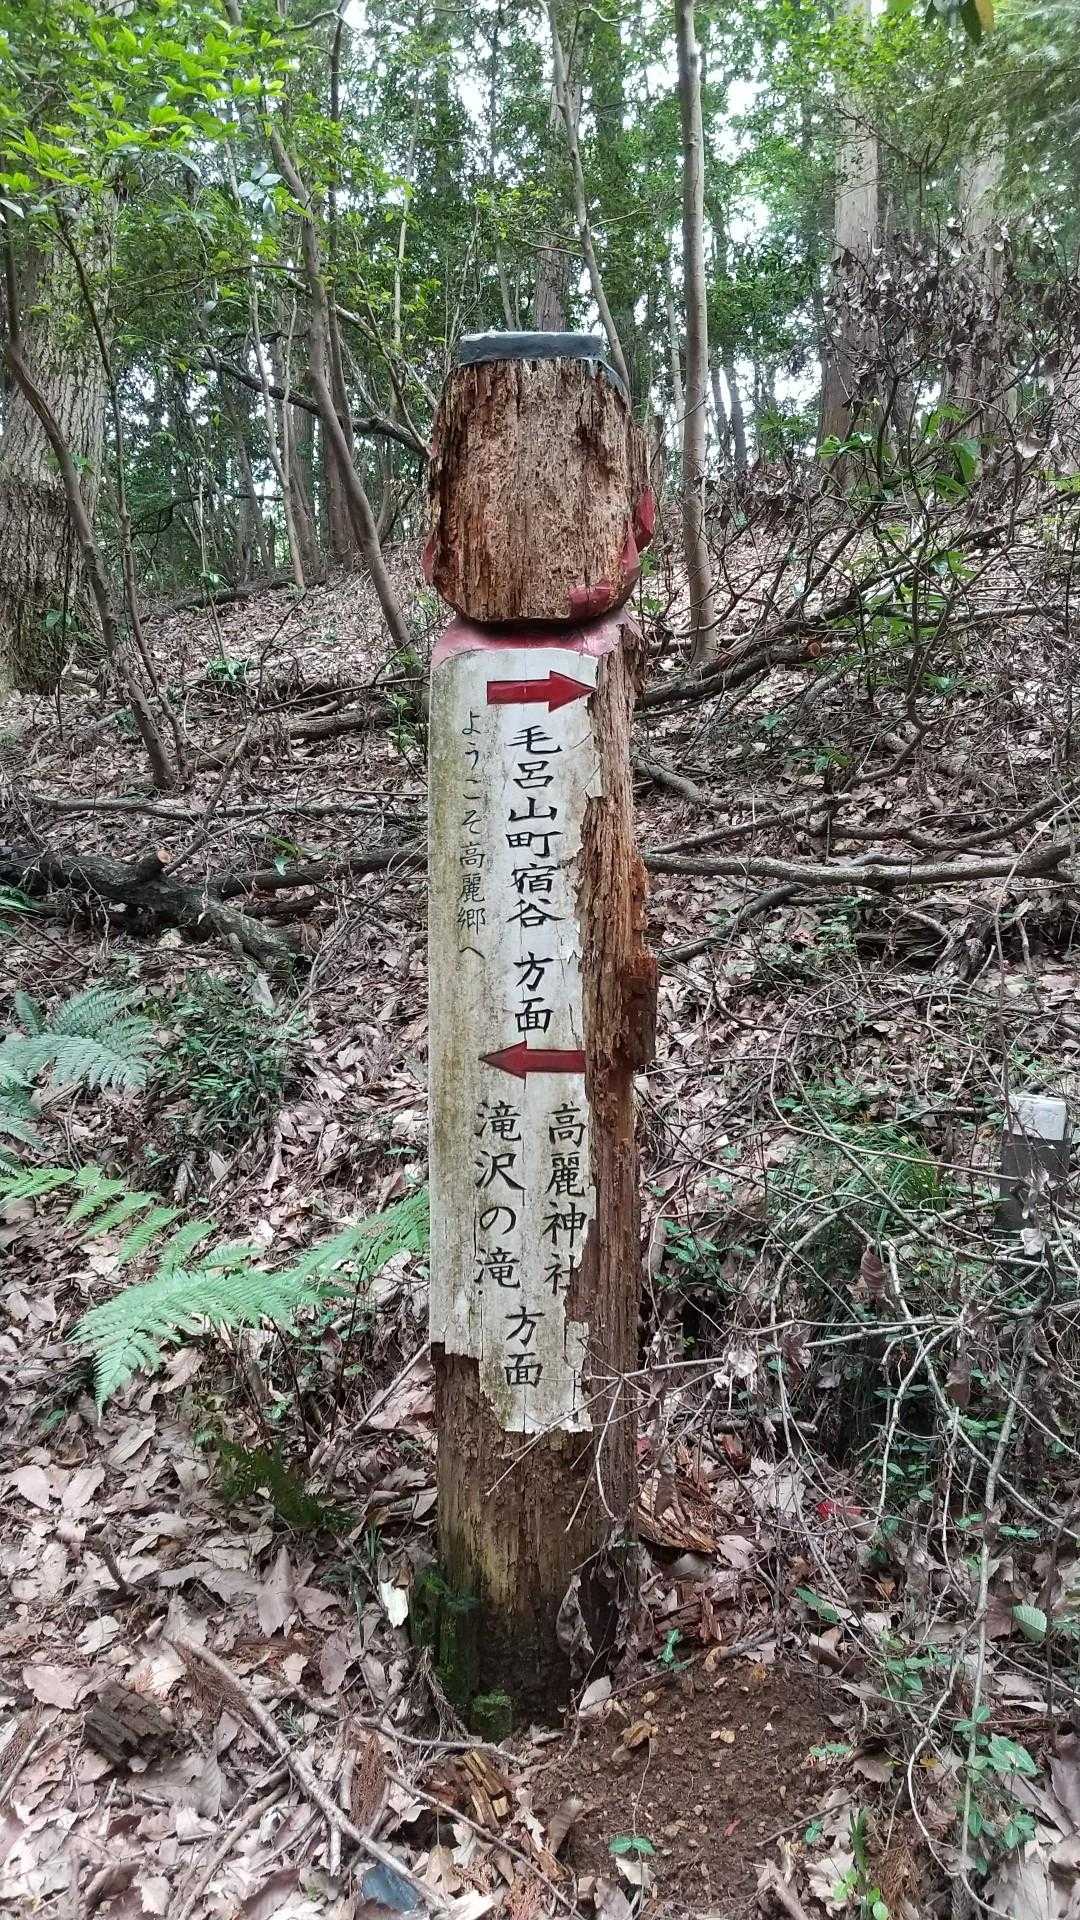 毛呂山町宿谷方面
ようこそ高麗郷へ
高麗神社
滝沢の滝
方面